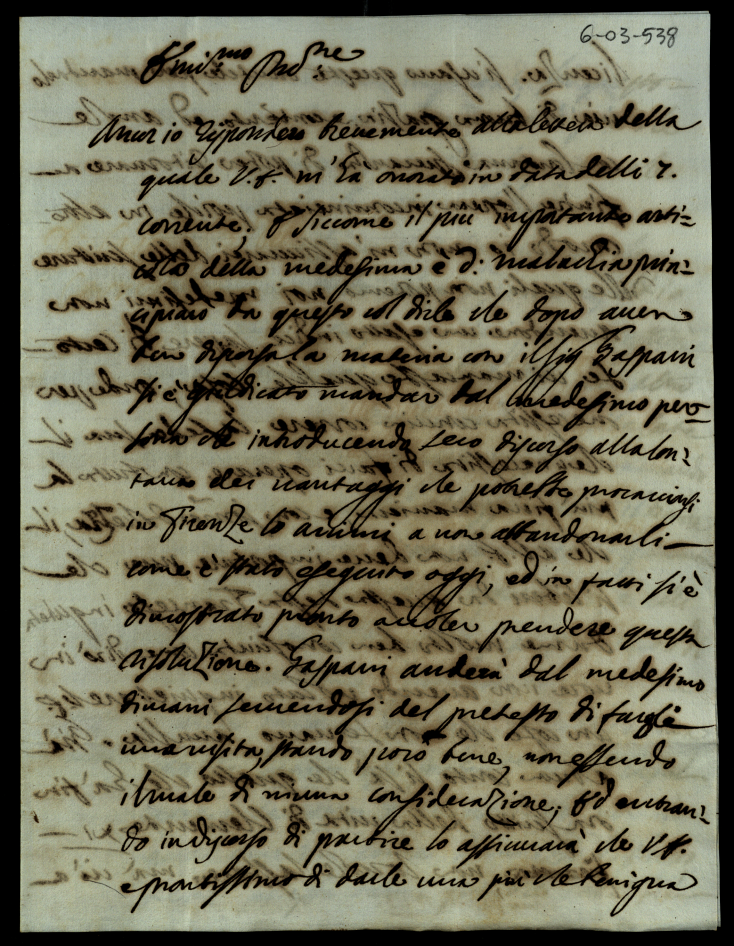 6-03-538
Emin.mo Prone
Ancor io risponderò brevemente alla lettera della
quale V.S. m'ha onorato in data delli 7.
corrente. E siccome il più importante arti=
colo della medesima è di Malachia prin=
cipiarò da questo col dirle che dopo aver
ben dispersa la materia con il Sig Gaspani
si è giudicato mandar dal medesimo per=
sona che introducendo seco discorso alla lon=
tana dei vantaggi che potrebbe procacciarsi
in Firenze lo animi a non abbandonarli
come è stato eseguito oggi, ed in fatti si è
dimostrato pronto a voler prendere questa
risoluzione. Gaspani anderà dal medesimo
dimani servendosi del pretesto di fargli
una visita, stando però bene, non essendo
il male di niuna considerazione; Ed entran=
do in discorso di partire lo assicurarà che V.S.
è prontissimo di darle una più che benigna